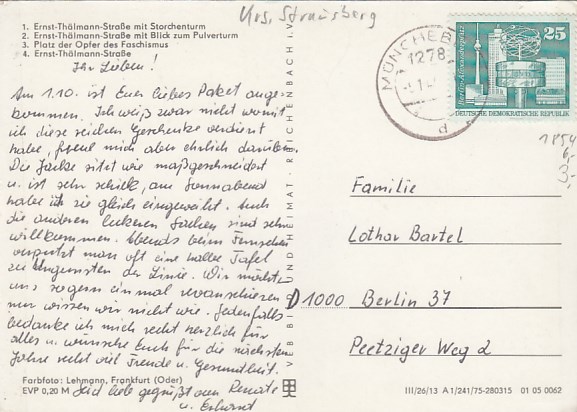 Krs. Strausberg
1. Ernst-Thälmann-Straße mit Storchenturm
2. Ernst-Thälmann-Straße mit Blick zum Pulverturm
3. Platz der Opfer des Faschismus
4. Ernst-Thälmann-Straße
Ihr Lieben!
Am 1.10. ist Euer liebes Paket ange-
kommen. Ich weiß zwar nicht womit
ich diese reichen Geschenke verdient
habe, freue mich aber ehrlich darüber.
Die Jacke sitzt wie maßgeschneidert
u. ist sehr schick, am Sonnabend
habe ich sie gleich eingeweiht. Auch
die anderen leckeren Sachen sind sehr
willkommen. Abends beim Fernsehen
verputzt man oft eine halbe Tafel
zu Ungunsten der Linie. Wir möchten
uns so gern einmal revanchieren
nur wissen wir nicht wie. Jedenfalls
bedanke ich mich recht herzlich für
alles u. wünsche Euch für die nächsten
Jahre recht viel Freude u. Gesundheit.
Seid lieb gegrüßt von Renate
u. Erhard
Farbfoto: Lehmann, Frankfurt (Oder)
EVP 0,20 M
VEB BILD UND HEIMAT · REICHENBACH I. V.
MÜNCHEB
1278
d
25
Berlin-Alexanderplatz
DEUTSCHE DEMOKRATISCHE REPUBLIK
1854
6,-
3,-
Familie
Lothar Bartel
D 1000 Berlin 37
Peetziger Weg 2
III/26/13 A 1/241/75-280315 01 05 0062